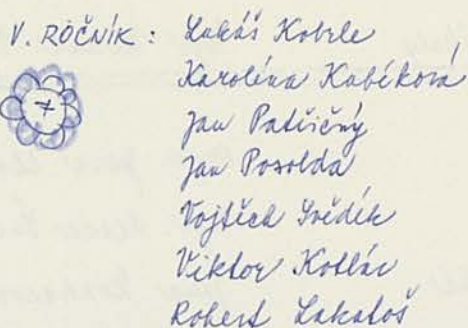 V. ROČNÍK: Lukáš Kobrle
Karolína Kubíková
7
Jan Patřičný
Jan Posolda
Vojtěch Svědík
Viktor Kotlár
Robert Lakatoš